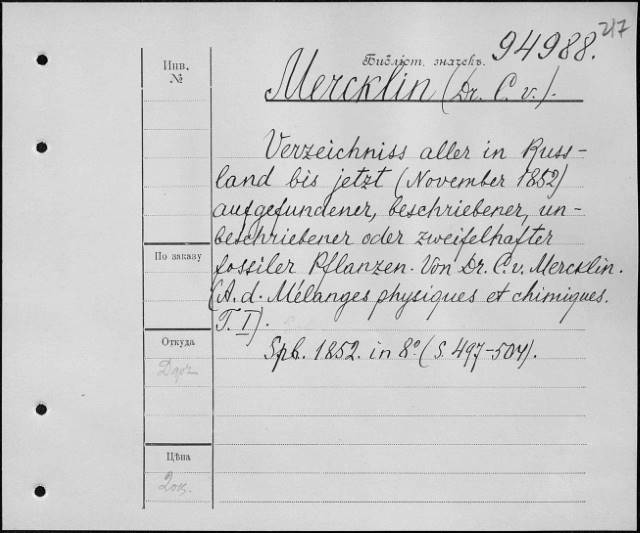 217
Инв. №
Библіот. значекъ. 94988.
Mercklin (Dr. C. v.).
Verzeichniss aller in Russ-
land bis jetzt (November 1852)
aufgefundener, beschriebener, un-
beschriebener oder zweifelhafter
fossiler Pflanzen. Von Dr. C. v. Mercklin.
(A. d. Mélanges physiques et chimiques.
T. I).
Spb. 1852. in 8º (S. 497-504).
По заказу
Откуда
Цѣна